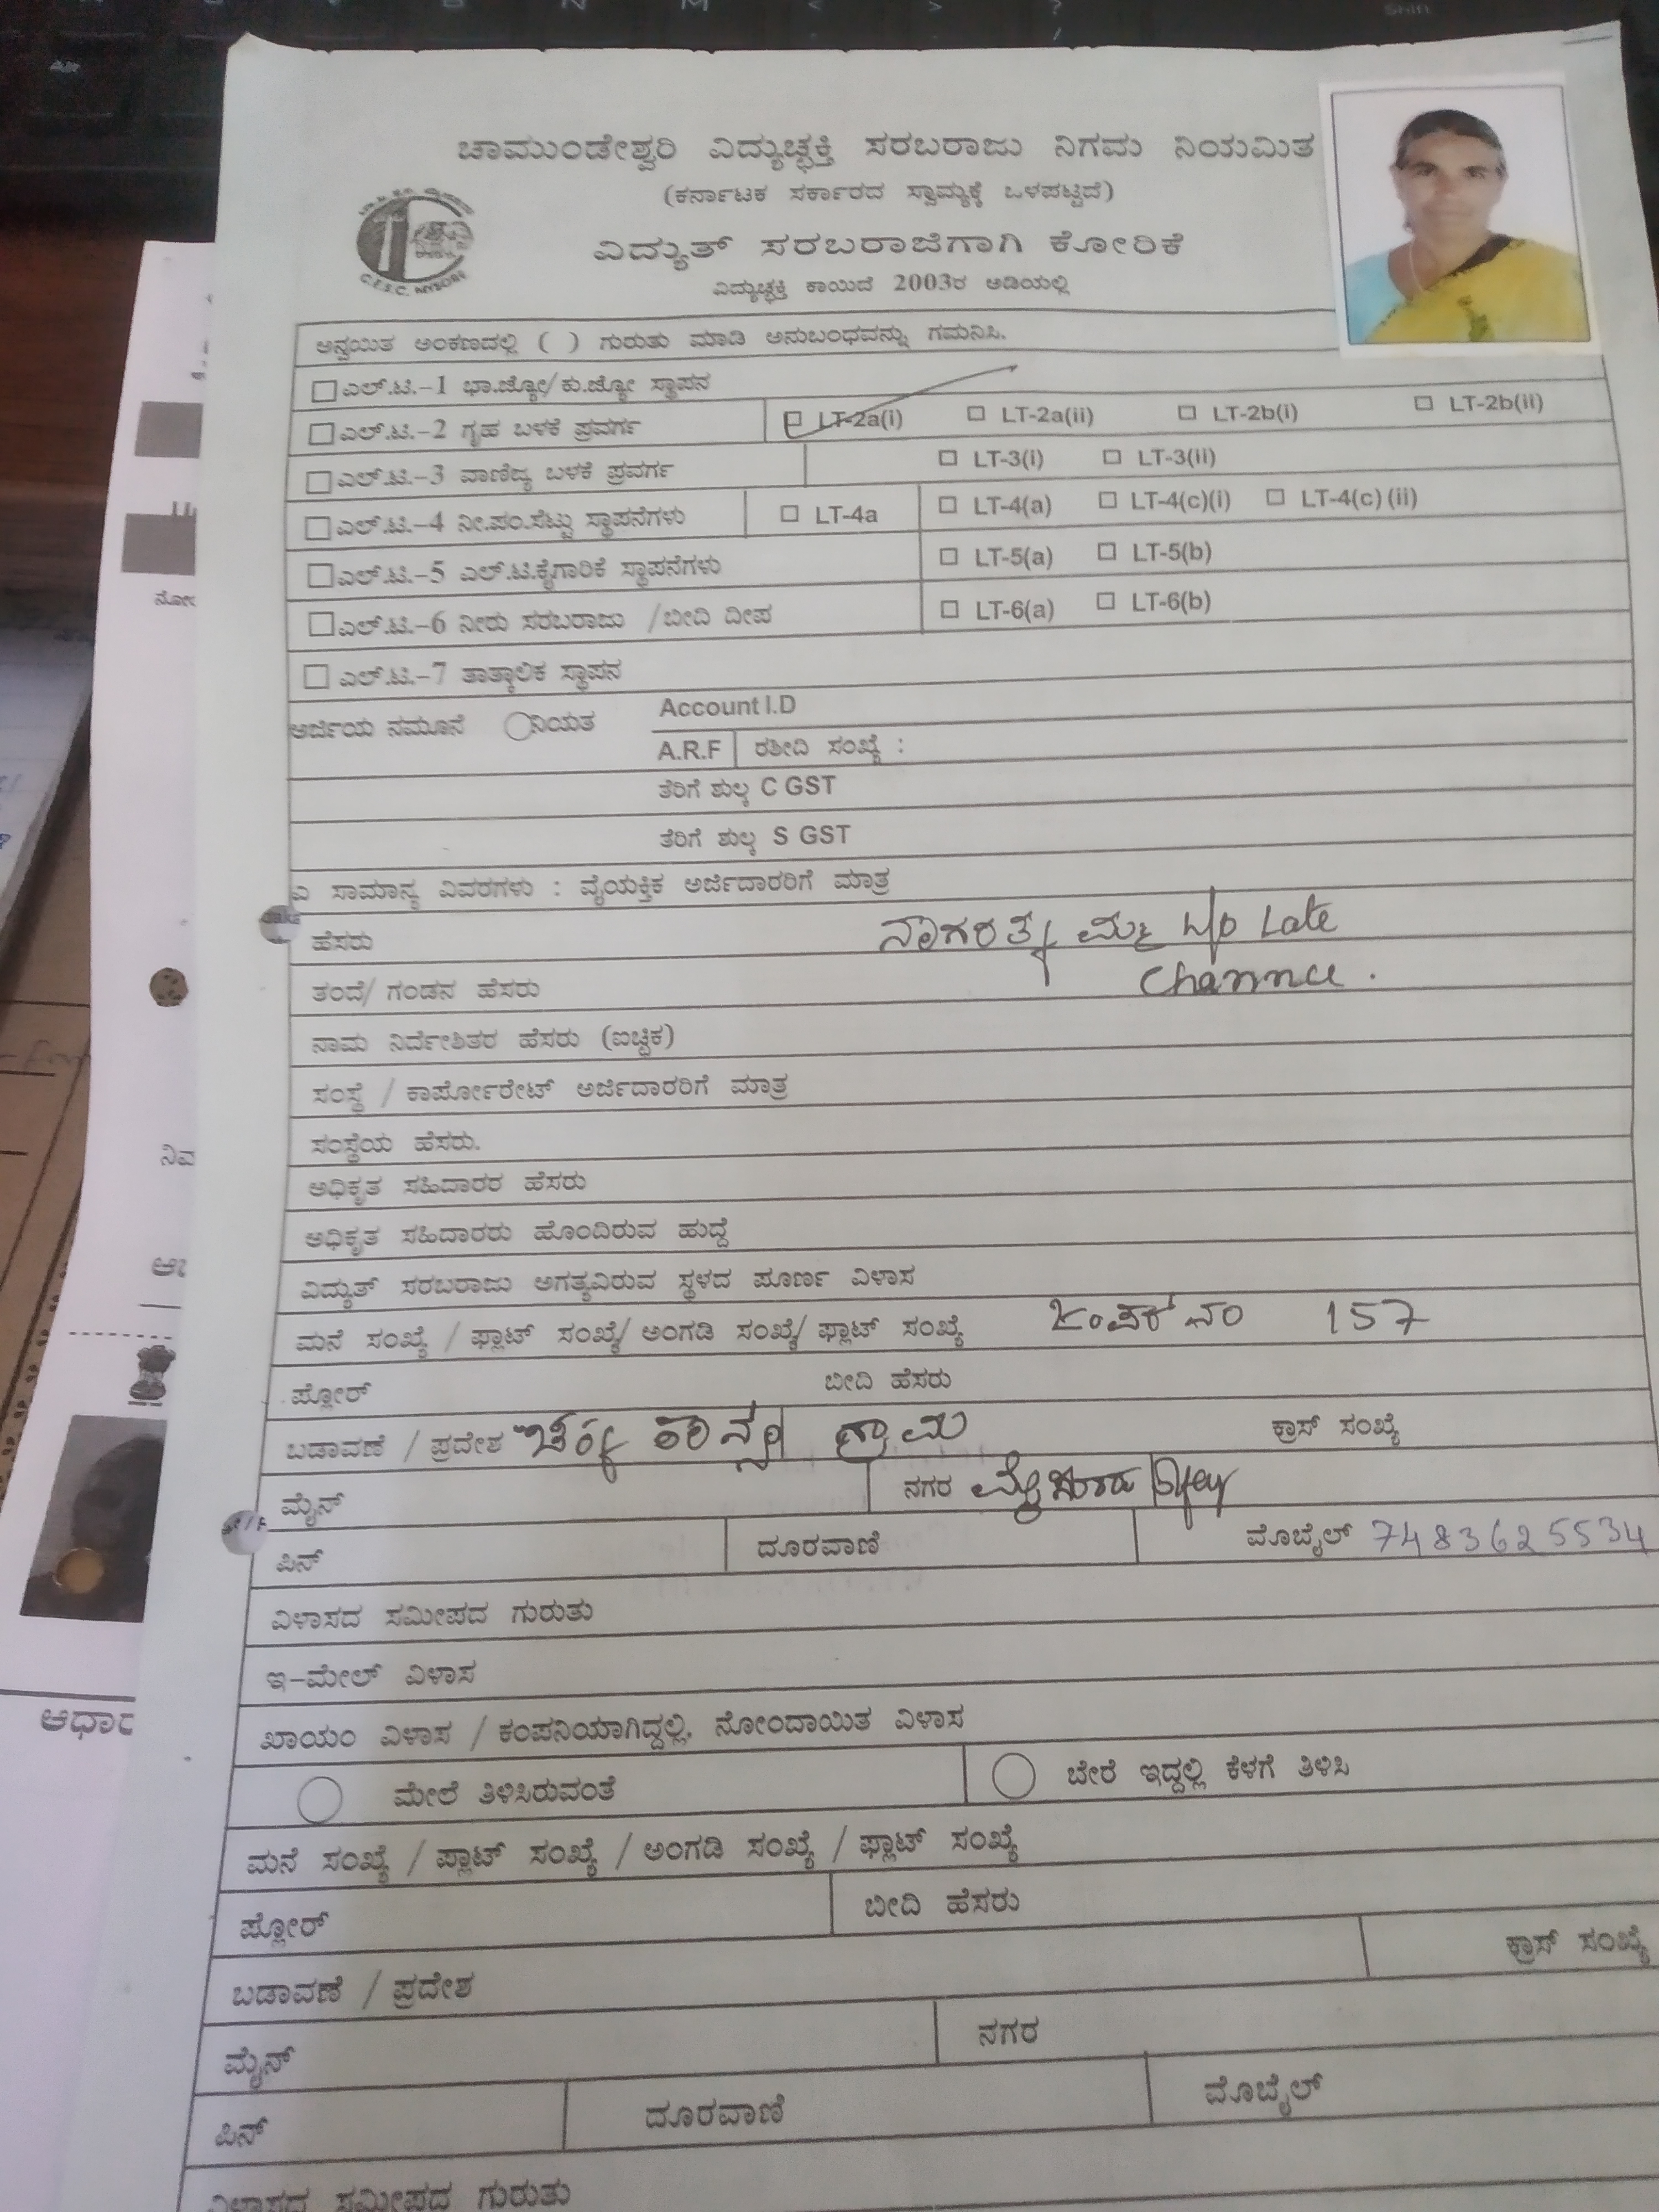 ಚಾಮುಂಡೇಶ್ವರಿ ವಿದ್ಯುಚ್ಛಕ್ತಿ ಸರಬರಾಜು ನಿಗಮ ನಿಯಮಿತ
(ಕರ್ನಾಟಕ ಸರ್ಕಾರದ ಸ್ವಾಮ್ಯಕ್ಕೆ ಒಳಪಟ್ಟಿದೆ)
ವಿದ್ಯುತ್ ಸರಬರಾಜಿಗಾಗಿ ಕೋರಿಕೆ
C.E.S.C. MYSORE
ವಿದ್ಯುಚ್ಛಕ್ತಿ ಕಾಯಿದೆ 2003ರ ಅಡಿಯಲ್ಲಿ
ಅನ್ವಯಿತ ಅಂಕಣದಲ್ಲಿ ( ) ಗುರುತು ಮಾಡಿ ಅನುಬಂಧವನ್ನು ಗಮನಿಸಿ.
ಎಲ್.ಟಿ.-1 ಭಾ.ಜ್ಯೋ/ಕು.ಜ್ಯೋ ಸ್ಥಾಪನ
ಎಲ್.ಟಿ.-2 ಗೃಹ ಬಳಕೆ ಪ್ರವರ್ಗ LT-2a(i) LT-2a(ii) LT-2b(i) LT-2b(ii)
ಎಲ್.ಟಿ.-3 ವಾಣಿಜ್ಯ ಬಳಕೆ ಪ್ರವರ್ಗ LT-3(i) LT-3(ii)
ಎಲ್.ಟಿ.-4 ನೀ.ಪಂ.ಸೆಟ್ಟು ಸ್ಥಾಪನೆಗಳು LT-4a LT-4(a) LT-4(c)(i) LT-4(c) (ii)
ಎಲ್.ಟಿ.-5 ಎಲ್.ಟಿ.ಕೈಗಾರಿಕೆ ಸ್ಥಾಪನೆಗಳು LT-5(a) LT-5(b)
ಎಲ್.ಟಿ.-6 ನೀರು ಸರಬರಾಜು /ಬೀದಿ ದೀಪ LT-6(a) LT-6(b)
ಎಲ್.ಟಿ.-7 ತಾತ್ಕಾಲಿಕ ಸ್ಥಾಪನ
ಅರ್ಜಿಯ ನಮೂನೆ ನಿಯತ Account I.D
A.R.F ರಶೀದಿ ಸಂಖ್ಯೆ :
ತೆರಿಗೆ ಶುಲ್ಕ C GST
ತೆರಿಗೆ ಶುಲ್ಕ S GST
ಎ ಸಾಮಾನ್ಯ ವಿವರಗಳು : ವೈಯಕ್ತಿಕ ಅರ್ಜಿದಾರರಿಗೆ ಮಾತ್ರ
ಹೆಸರು ನಾಗರತ್ನಮ್ಮ w/o Late
ತಂದೆ/ ಗಂಡನ ಹೆಸರು
ನಾಮ ನಿರ್ದೇಶಿತರ ಹೆಸರು (ಐಚ್ಛಿಕ)
ಸಂಸ್ಥೆ / ಕಾರ್ಪೋರೇಟ್ ಅರ್ಜಿದಾರರಿಗೆ ಮಾತ್ರ
ಸಂಸ್ಥೆಯ ಹೆಸರು.
ಅಧಿಕೃತ ಸಹಿದಾರರ ಹೆಸರು
ಅಧಿಕೃತ ಸಹಿದಾರರು ಹೊಂದಿರುವ ಹುದ್ದೆ
ವಿದ್ಯುತ್ ಸರಬರಾಜು ಅಗತ್ಯವಿರುವ ಸ್ಥಳದ ಪೂರ್ಣ ವಿಳಾಸ
ಮನೆ ಸಂಖ್ಯೆ / ಫ್ಲಾಟ್ ಸಂಖ್ಯೆ/ ಅಂಗಡಿ ಸಂಖ್ಯೆ/ ಫ್ಲಾಟ್ ಸಂಖ್ಯೆ ನಂ 157
ಫ್ಲೋರ್ ಬೀದಿ ಹೆಸರು
ಬಡಾವಣೆ / ಪ್ರದೇಶ ಚಿಕ್ಕ ಕಾನ್ಯ ಗ್ರಾಮ ಕ್ರಾಸ್ ಸಂಖ್ಯೆ
ಮೈನ್ ನಗರ ಮೈಸೂರು
ಪಿನ್ ದೂರವಾಣಿ ಮೊಬೈಲ್ 7483625534
ವಿಳಾಸದ ಸಮೀಪದ ಗುರುತು
ಇ-ಮೇಲ್ ವಿಳಾಸ
ಖಾಯಂ ವಿಳಾಸ / ಕಂಪನಿಯಾಗಿದ್ದಲ್ಲಿ, ನೋಂದಾಯಿತ ವಿಳಾಸ
ಮೇಲೆ ತಿಳಿಸಿರುವಂತೆ ಬೇರೆ ಇದ್ದಲ್ಲಿ ಕೆಳಗೆ ತಿಳಿಸಿ
ಮನೆ ಸಂಖ್ಯೆ / ಪ್ಲಾಟ್ ಸಂಖ್ಯೆ / ಅಂಗಡಿ ಸಂಖ್ಯೆ / ಫ್ಲಾಟ್ ಸಂಖ್ಯೆ
ಫ್ಲೋರ್ ಬೀದಿ ಹೆಸರು
ಬಡಾವಣೆ / ಪ್ರದೇಶ ಕ್ರಾಸ್ ಸಂಖ್ಯೆ
ಮೈನ್ ನಗರ
ಪಿನ್ ದೂರವಾಣಿ ಮೊಬೈಲ್
ವಿಳಾಸದ ಸಮೀಪದ ಗುರುತು